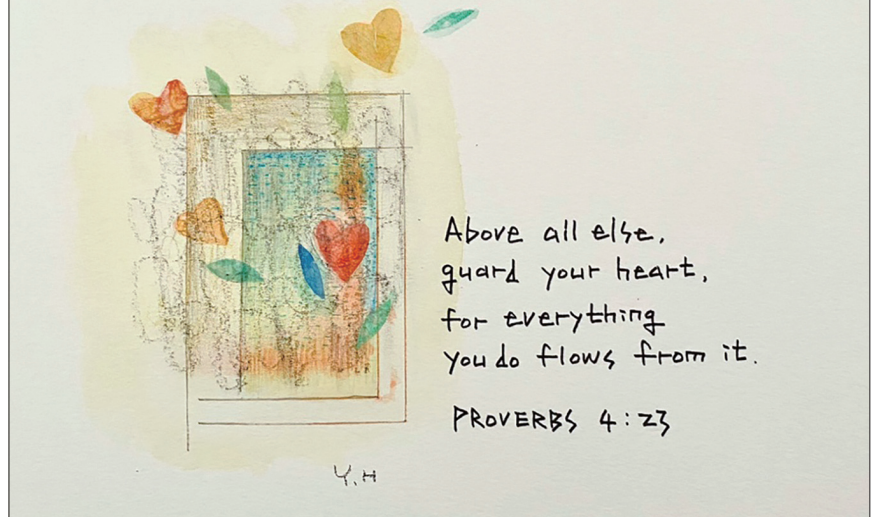 Above all else,
guard your heart,
for everything
you do flows from it.
PROVERBS 4:23
Y.H